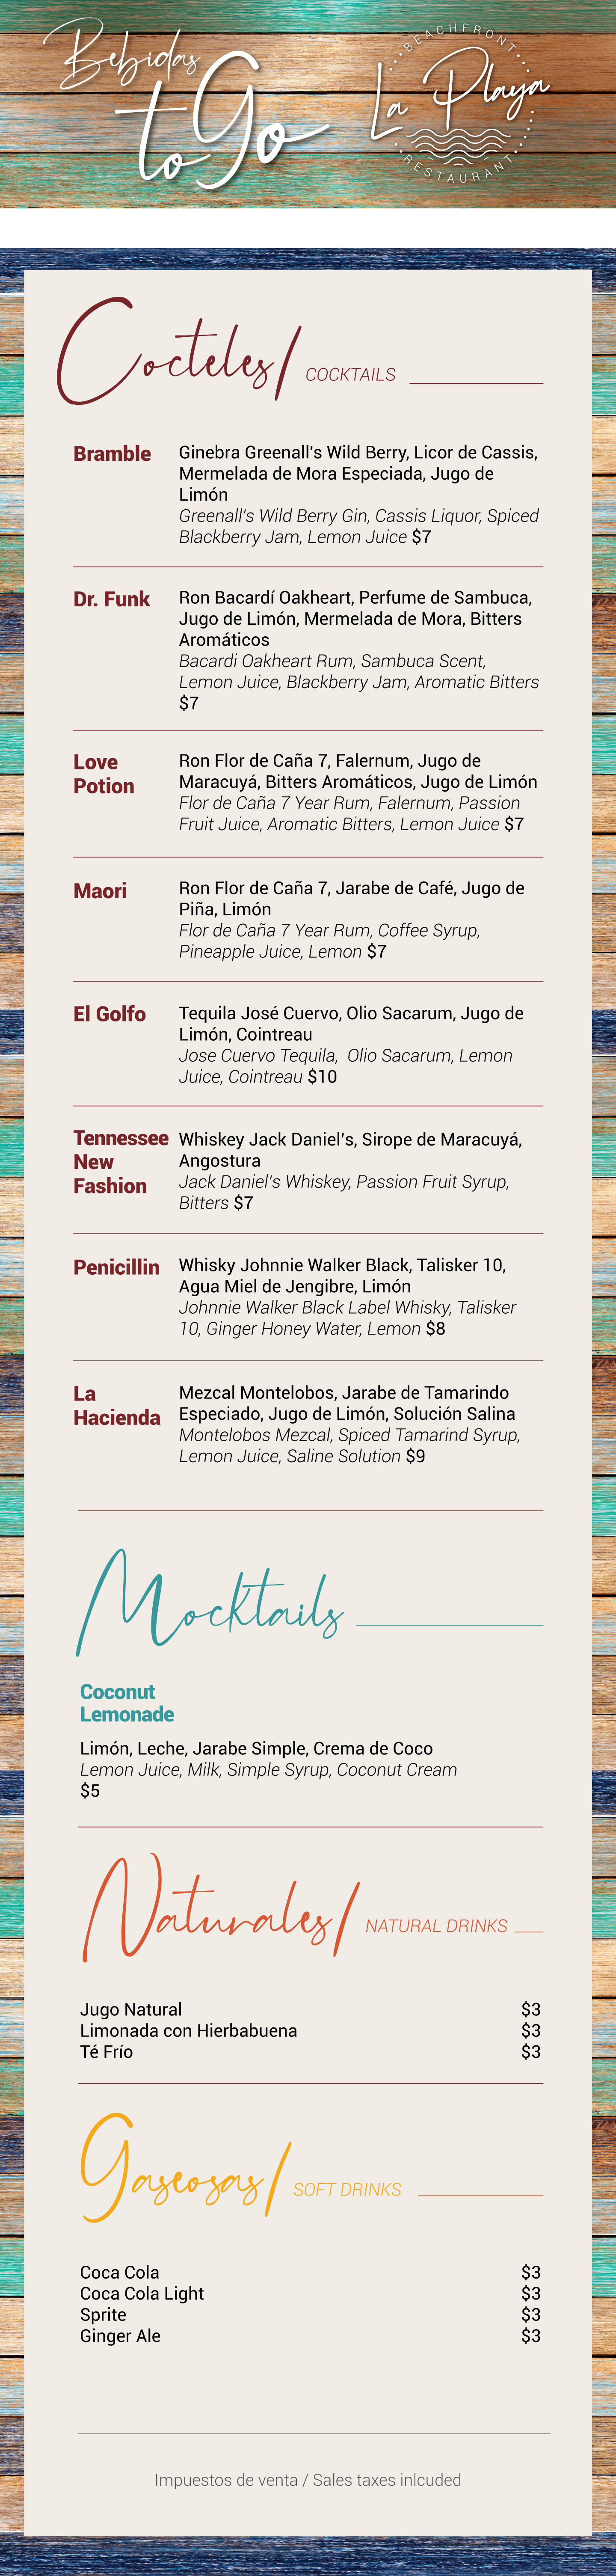 Bebidas
to Go
BEACHFRONT
La Playa
RESTAURANT
Cocteles/ COCKTAILS
Bramble
Ginebra Greenall's Wild Berry, Licor de Cassis,
Mermelada de Mora Especiada, Jugo de
Limón
Greenall's Wild Berry Gin, Cassis Liquor, Spiced
Blackberry Jam, Lemon Juice $7
Dr. Funk
Ron Bacardí Oakheart, Perfume de Sambuca,
Jugo de Limón, Mermelada de Mora, Bitters
Aromáticos
Bacardi Oakheart Rum, Sambuca Scent,
Lemon Juice, Blackberry Jam, Aromatic Bitters
$7
Love
Potion
Ron Flor de Caña 7, Falernum, Jugo de
Maracuyá, Bitters Aromáticos, Jugo de Limón
Flor de Caña 7 Year Rum, Falernum, Passion
Fruit Juice, Aromatic Bitters, Lemon Juice $7
Maori
Ron Flor de Caña 7, Jarabe de Café, Jugo de
Piña, Limón
Flor de Caña 7 Year Rum, Coffee Syrup,
Pineapple Juice, Lemon $7
El Golfo
Tequila José Cuervo, Olio Sacarum, Jugo de
Limón, Cointreau
Jose Cuervo Tequila, Olio Sacarum, Lemon
Juice, Cointreau $10
Tennessee
New
Fashion
Whiskey Jack Daniel's, Sirope de Maracuyá,
Angostura
Jack Daniel's Whiskey, Passion Fruit Syrup,
Bitters $7
Penicillin
Whisky Johnnie Walker Black, Talisker 10,
Agua Miel de Jengibre, Limón
Johnnie Walker Black Label Whisky, Talisker
10, Ginger Honey Water, Lemon $8
La
Hacienda
Mezcal Montelobos, Jarabe de Tamarindo
Especiado, Jugo de Limón, Solución Salina
Montelobos Mezcal, Spiced Tamarind Syrup,
Lemon Juice, Saline Solution $9
Mocktails
Coconut
Lemonade
Limón, Leche, Jarabe Simple, Crema de Coco
Lemon Juice, Milk, Simple Syrup, Coconut Cream
$5
Naturales/ NATURAL DRINKS
Jugo Natural $3
Limonada con Hierbabuena $3
Té Frío $3
Gaseosas/ SOFT DRINKS
Coca Cola $3
Coca Cola Light $3
Sprite $3
Ginger Ale $3
Impuestos de venta / Sales taxes inlcuded